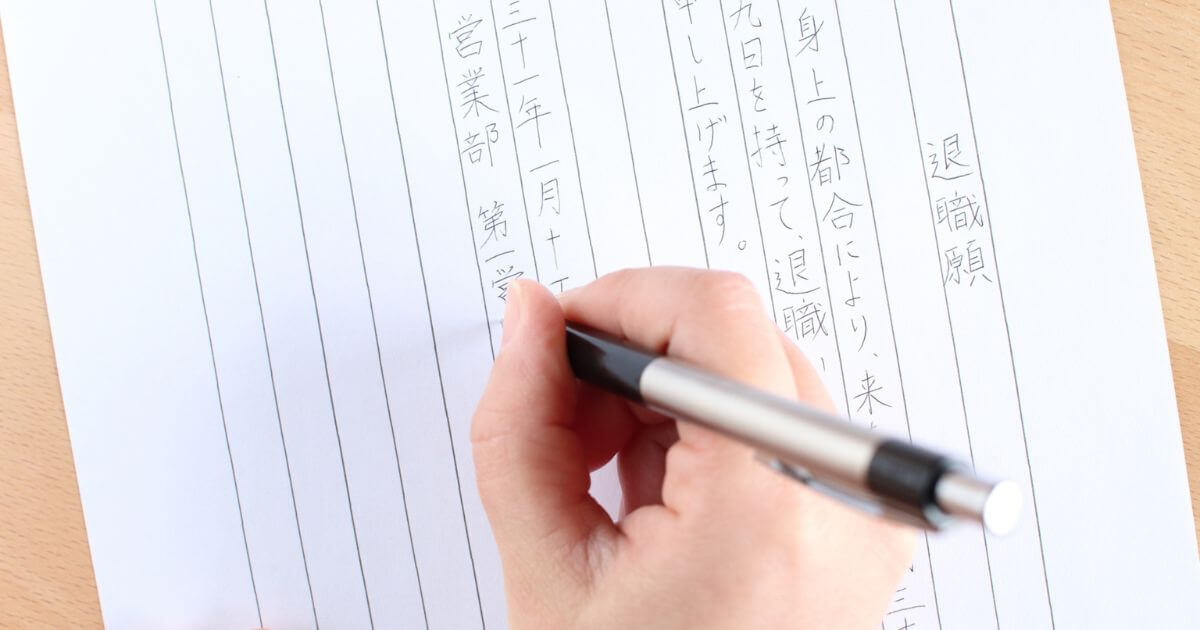 退職願
身上の都合により、来
三十
九日を持って、退職
申し上げます。
三十一年一月十
営業部 第一営